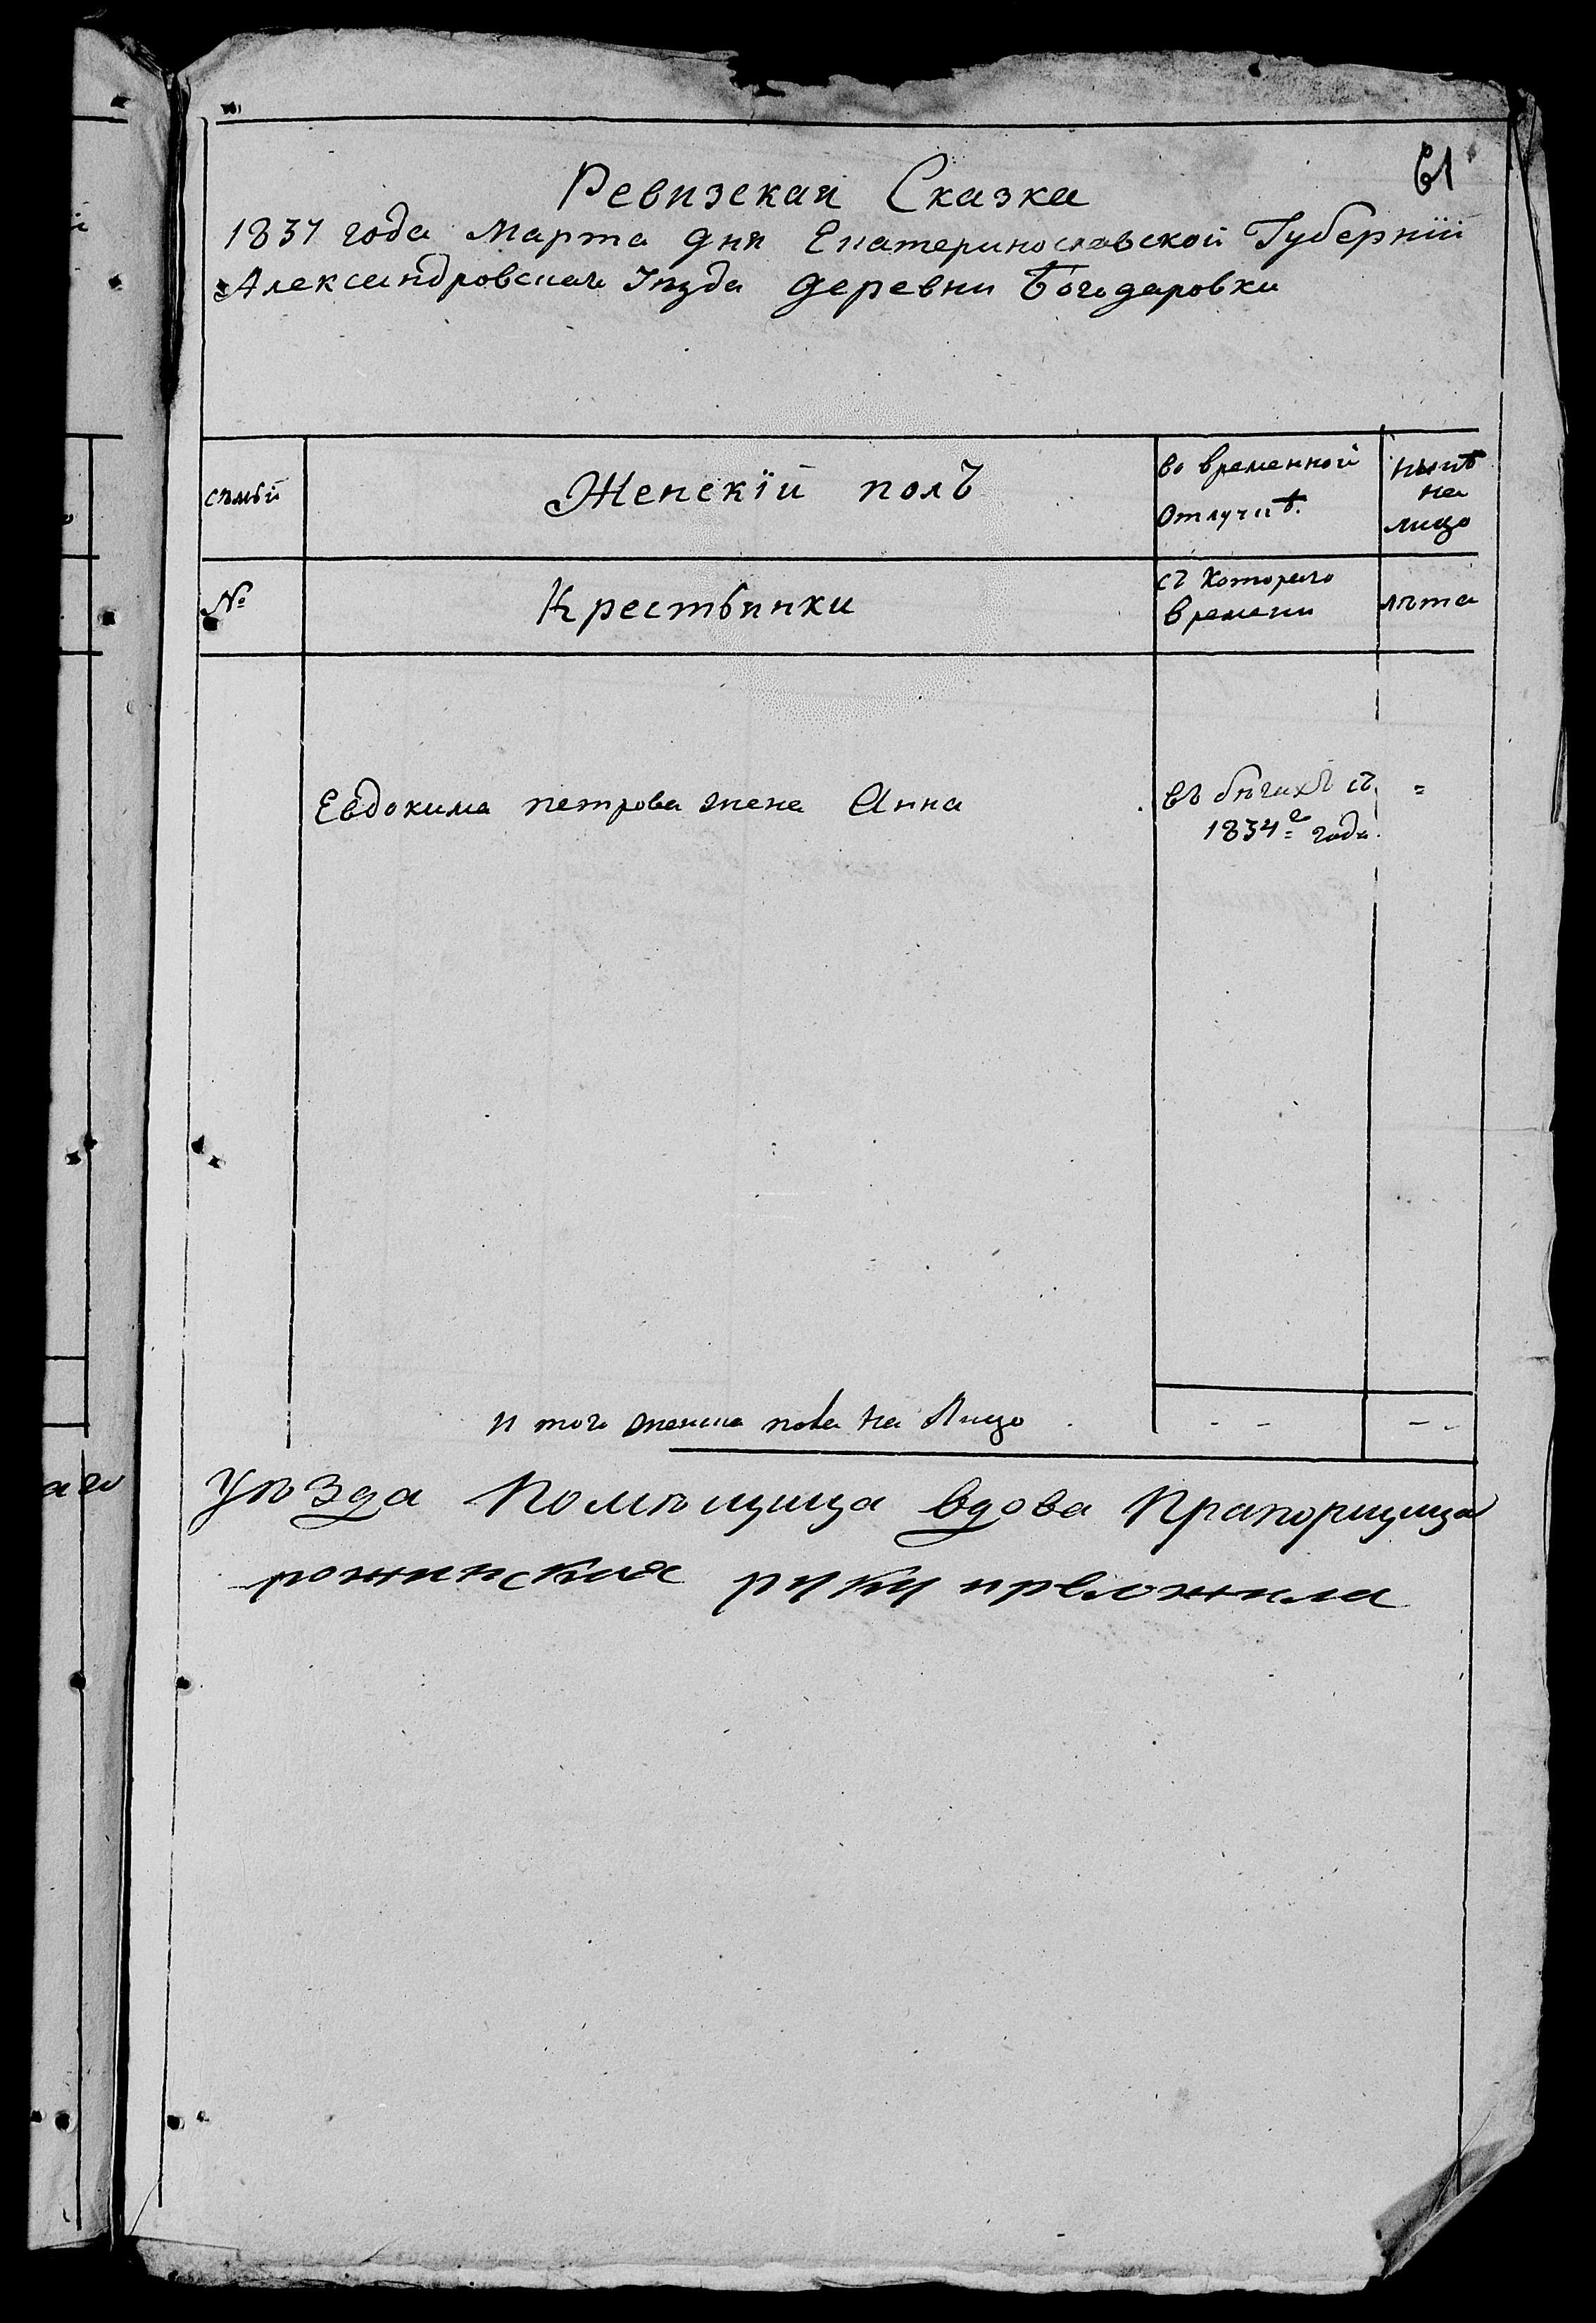 61
Ревизская Сказка
1837 года Марта дня Екатеринославской Губернїи
Александровскаго Уѣзда деревни Богодаровки
сѣмьи
Женскїй полъ
во временной
отлучкѣ.
нынѣ
на
лицо
№
Крестьянки
съ котораго
времени
лѣта
Евдокима петрова жена Анна
въ бѣгахъ съ
1834го года
=
и того женска пола на Лицо
- -
- -
Уѣзда Помѣщица вдова Прапорщица
рожинская руку преложила
аго